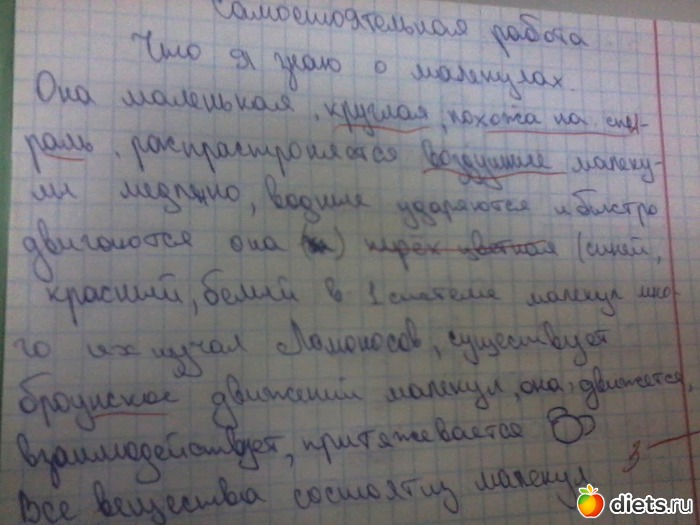 Самостоятельная работа
Что я знаю о малекулах.
Она маленькая, круглая, похожа на спи-
раль, распрастроняется воздушные малеку-
лы медлено, водные ударяются и быстро
двигаются она трех цветная (синей,
красний, белый в 1 системе малекул мно-
го их изучал Ламоносов, существует
броунское движений малекул, она, движется,
взаимодействует, притяжевается
Все вещества состоят из малекул
3-
diets.ru